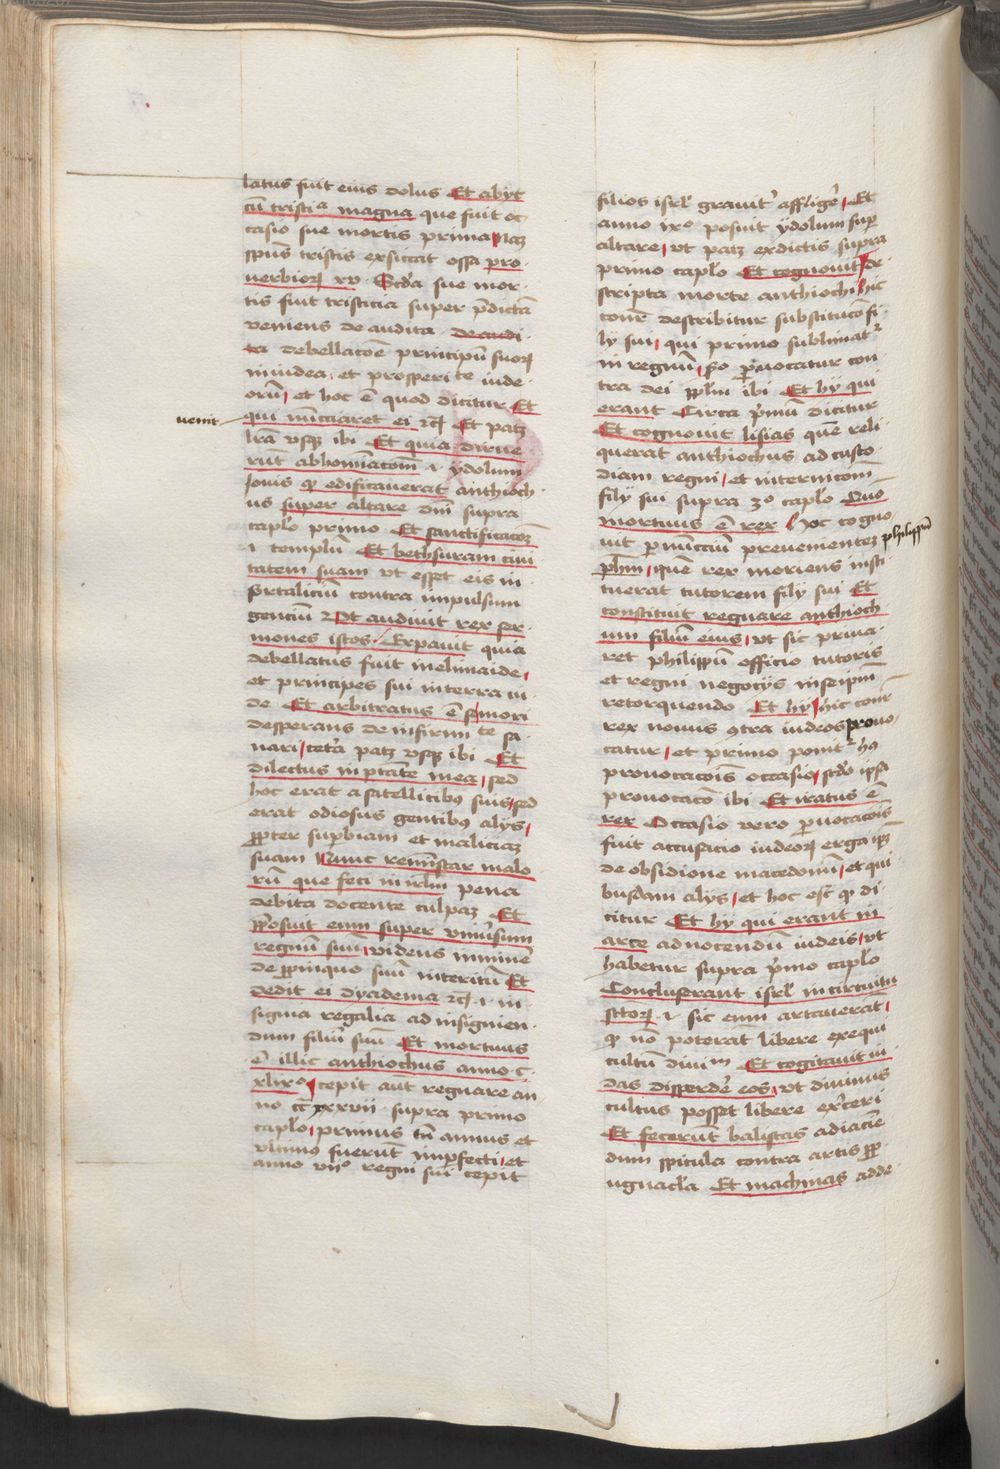 latus fuit eius dolus Et abyt
cū tristiᵃ magna que fuit oc
casio sue mortis prima naꝫ
sp̄us tristis exsiccat ossa pro
verbioꝝ xv Scd̄a sue mor
tis fuit tristicia super p̄dictā
veniens de audita de audi
ta debellacōe principū suoꝝ
in iudea et prosperite iude
orū et hoc ē quod dicitur Et
venit
qui nūcciaret ei ⁊cꝭ Et patꝫ
lrā vsqꝫ ibi Et quia dirue
rūt abhominacōm ⁊ ydolum
Jouis qꝫ edificauerat anthioch
us super altare dn̄i supra
caplo primo Et sanctificacōꝫ
⁊ templū Et bethsuram ciui
tatem suam vt esset eis in
fortaliciū contra impulsum
genciū Et audiuit rex ser
mones istos Expauit quia
debellatus fuit in elimaide
et principes sui in terra iu
de Et arbitratus ē se mori
desperans de infirmite sa
nari cet̄a patꝫ vsqꝫ ibi Et
dilectus in ptāte mea sed
hoc erat a satellitibꝰ suis sed
erat odiosus gentibꝰ alijs
ꝓpter supbiam et maliciaꝫ
suam Nunc reminiscar malo
rū que feci in irlm̄ pena
debita docente culpaꝫ Et
p̄posuit eum super vniūsum
regnū suū videns iminē
de ꝓpinquo suū interitū Et
dedit ei dyadema ⁊cꝭ ⁊ in
signia regalia ad insignien
dum filiū suū Et mortuus
ē illic anthiochus anno c
xlixᵒ cepit aūt regnare an
no cᵒxxxvii supra primo
caplo primus tn̄ annus et
vltimꝰ fuerūt imperfecti et
anno viiᵒ regni sui cepit
filios isrl̄ grauit̄ affligē Et
anno ixᵒ posuit ydolum sup
altare vt patꝫ ex dictis supra
primo caplo Et cognouit de
scripta morte anthiochi hic
conr̄ describitur substitucō fi
ly sui qui primo sublimatᷣ
in regnū scd̄o ꝓuocatur con
tra dei pplm̄ ibi Et hy qui
erant Circa p̄mū dicitur
Et cognouit lisias quē reli
querat anthiochus ad custo
diam regni et in terricom̄
fily sui supra 3ᵒ caplo Quo
mortuus ē rex hoc cogno
uit p nūcciū preuenienteꝫ philippū
phm̄ quē rex moriens insti
tuerat tutorem fily sui Et
constituit regnare anthioch
um filiū eius vt sic priua
ret philippū officio tutoris
et regni negocijs in seipm̄
retorquendo Et hy hic conr̄
rex nouus ɔtra iudeos prouo
catur et primo ponitᷣ hꝰ
prouocacōis occasio scd̄o ipsa
prouocacō ibi Et iratus ē
rex Occasio vero ꝓuocacōis
fuit accusacio iudeoꝝ erga ipꝫ
de obsidione macedonū et qui
busdam alijs et hoc est qꝫ di
citur Et hy qui erant in
arce ad nocendū iudeis vt
habetur supra p̄mo caplo
Concluserant isrl̄ in circuitu
sc̄toꝝ ⁊ sic eum artauerāt
qꝫ nō poterāt libere exequi
cultū diuīm Et cogitauit iu
das disperdē eos vt diuinus
cultus posset libere ex̄ceri
Et fecerūt balistas ad iacien
dum spicula contra artis pro
ugnacla Et machinas adde